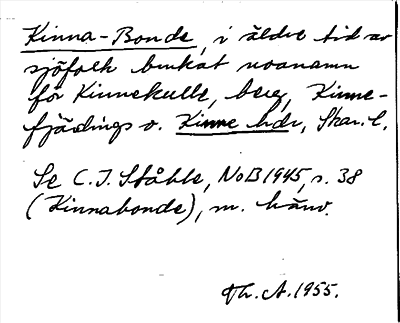 Kinna-Bonde, i äldre tid av
sjöfolk brukat noanamn
för Kinnekulle, berg, Kinne-
fjärdings o. Kinne hdr, Skar. l.
Se C.I. Ståhle, NoB 1945, s. 38
(Kinnabonde), m. hänv.
Th. A. 1955.